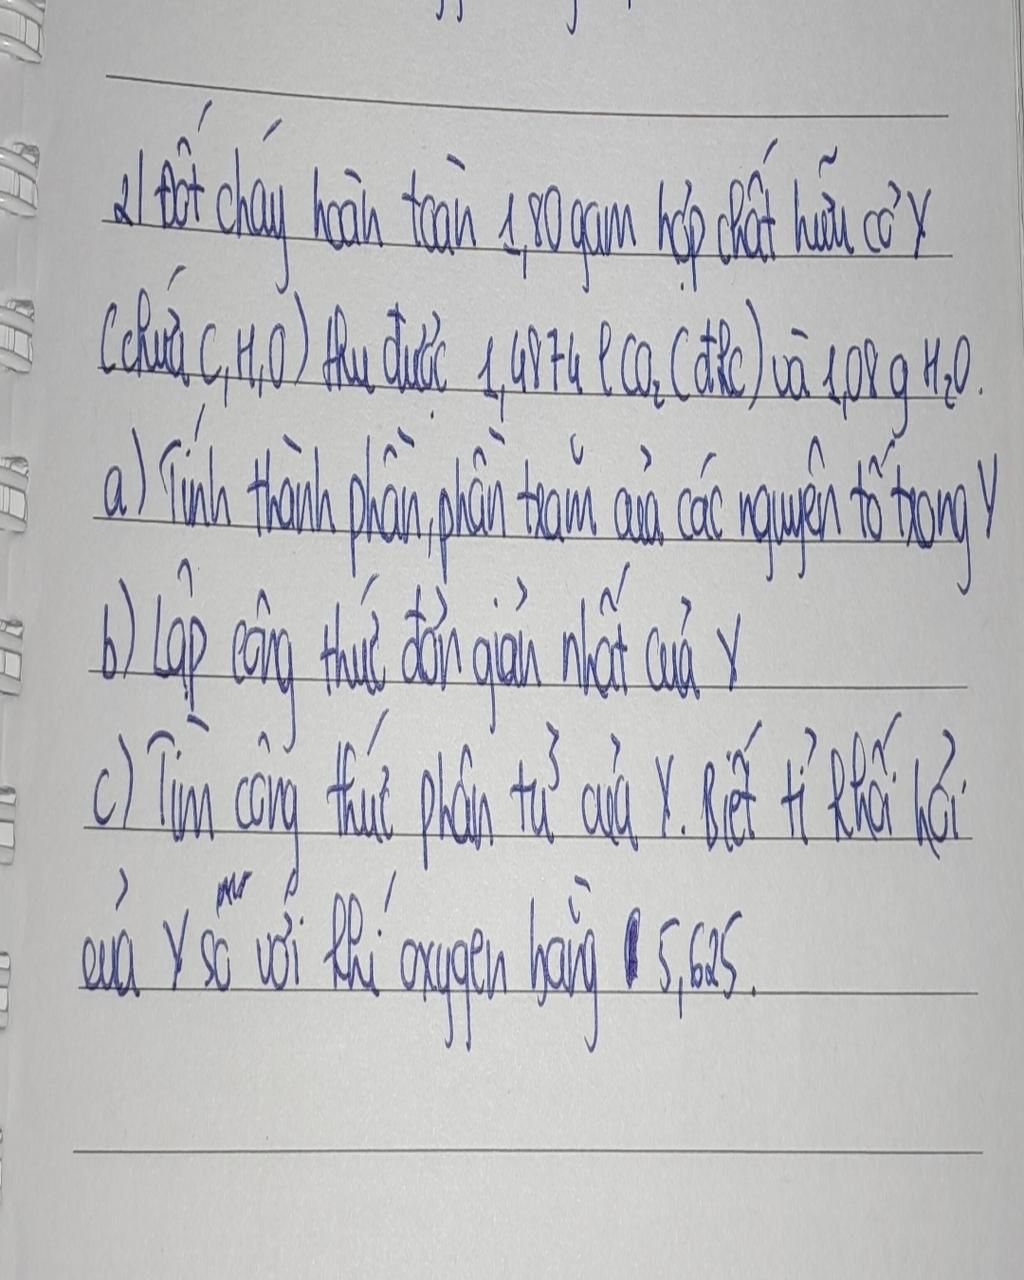 2) Đốt cháy hoàn toàn 1,80gam hợp chất hữu cơ Y
(chứa C,H,O) thu được 1,4874 l CO₂ (đkc) và 1,08g H₂O.
a) Tính thành phần, phần trăm của các nguyên tố trong Y
b) Lập công thức đơn giản nhất của Y
c) Tìm công thức phân tử của Y. Biết tỉ khối hơi
của Y so với khí oxygen bằng 5,625.